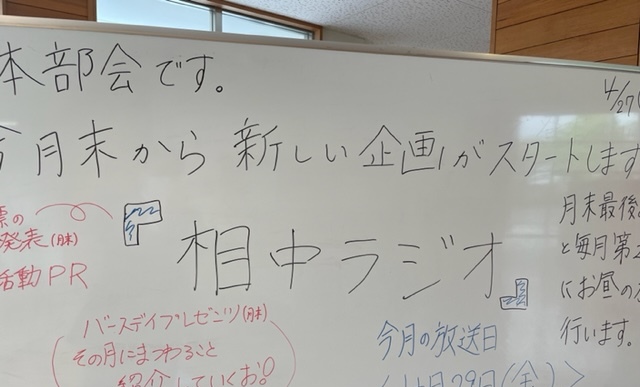 本部会です。
4/27(
今月末から 新しい企画がスタートします
標の
発表(月末)
活動PR
相中ラジオ
月末最後
と毎月第2
にお昼の
行います。
バースデイプレゼンツ(月末)
その月にまつわること
紹介していくお!
今月の放送日
29日(金)>